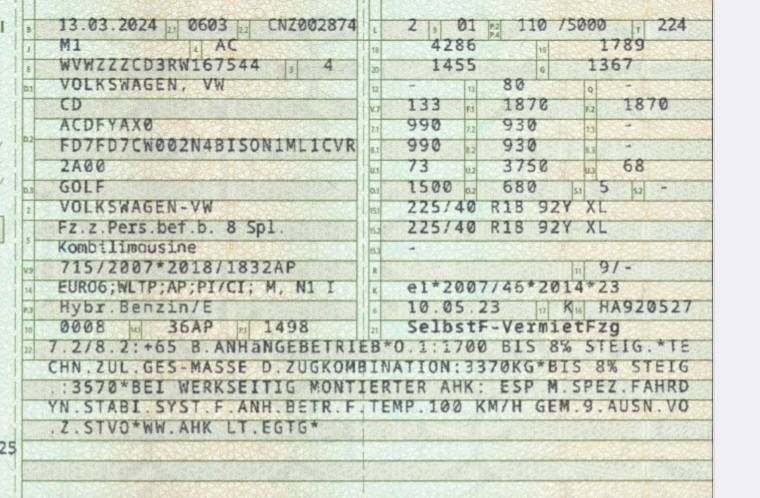 B 13.03.2024 2.1 0603 2.2 CNZ002874 L 2 9 01 P.2 P.4 110 /5000 T 224
J M1 4 AC 18 4286 19 1789
E WVWZZZCD3RW167544 3 4 20 1455 G 1367
D.1 VOLKSWAGEN, VW 12 - 13 80 Q -
CD V.7 133 F.1 1870 F.2 1870
D.2 ACDFYAX0 7.1 990 7.2 930 7.3 -
FD7FD7CW002N4BISON1ML1CVR 8.1 990 8.2 930 8.3 -
2A00 U.1 73 U.2 3750 U.3 68
D.3 GOLF O.1 1500 O.2 680 S.1 5 S.2 -
2 VOLKSWAGEN-VW 15.1 225/40 R18 92Y XL
5 Fz.z.Pers.bef.b. 8 Spl. 15.2 225/40 R18 92Y XL
Kombilimousine 15.3 -
V.9 715/2007*2018/1832AP R 11 9/-
14 EURO6;WLTP;AP;PI/CI; M, N1 I K e1*2007/46*2014*23
P.3 Hybr.Benzin/E 6 10.05.23 17 K 16 HA920527
10 0008 14.1 36AP P.1 1498 21 SelbstF-VermietFzg
22 7.2/8.2:+65 B.ANHäNGEBETRIEB*O.1:1700 BIS 8% STEIG.*TE
CHN.ZUL.GES-MASSE D.ZUGKOMBINATION:3370KG*BIS 8% STEIG
.:3570*BEI WERKSEITIG MONTIERTER AHK: ESP M.SPEZ.FAHRD
YN.STABI.SYST.F.ANH.BETR.F.TEMP.100 KM/H GEM.9.AUSN.VO
.Z.STVO*WW.AHK LT.EGTG*
25